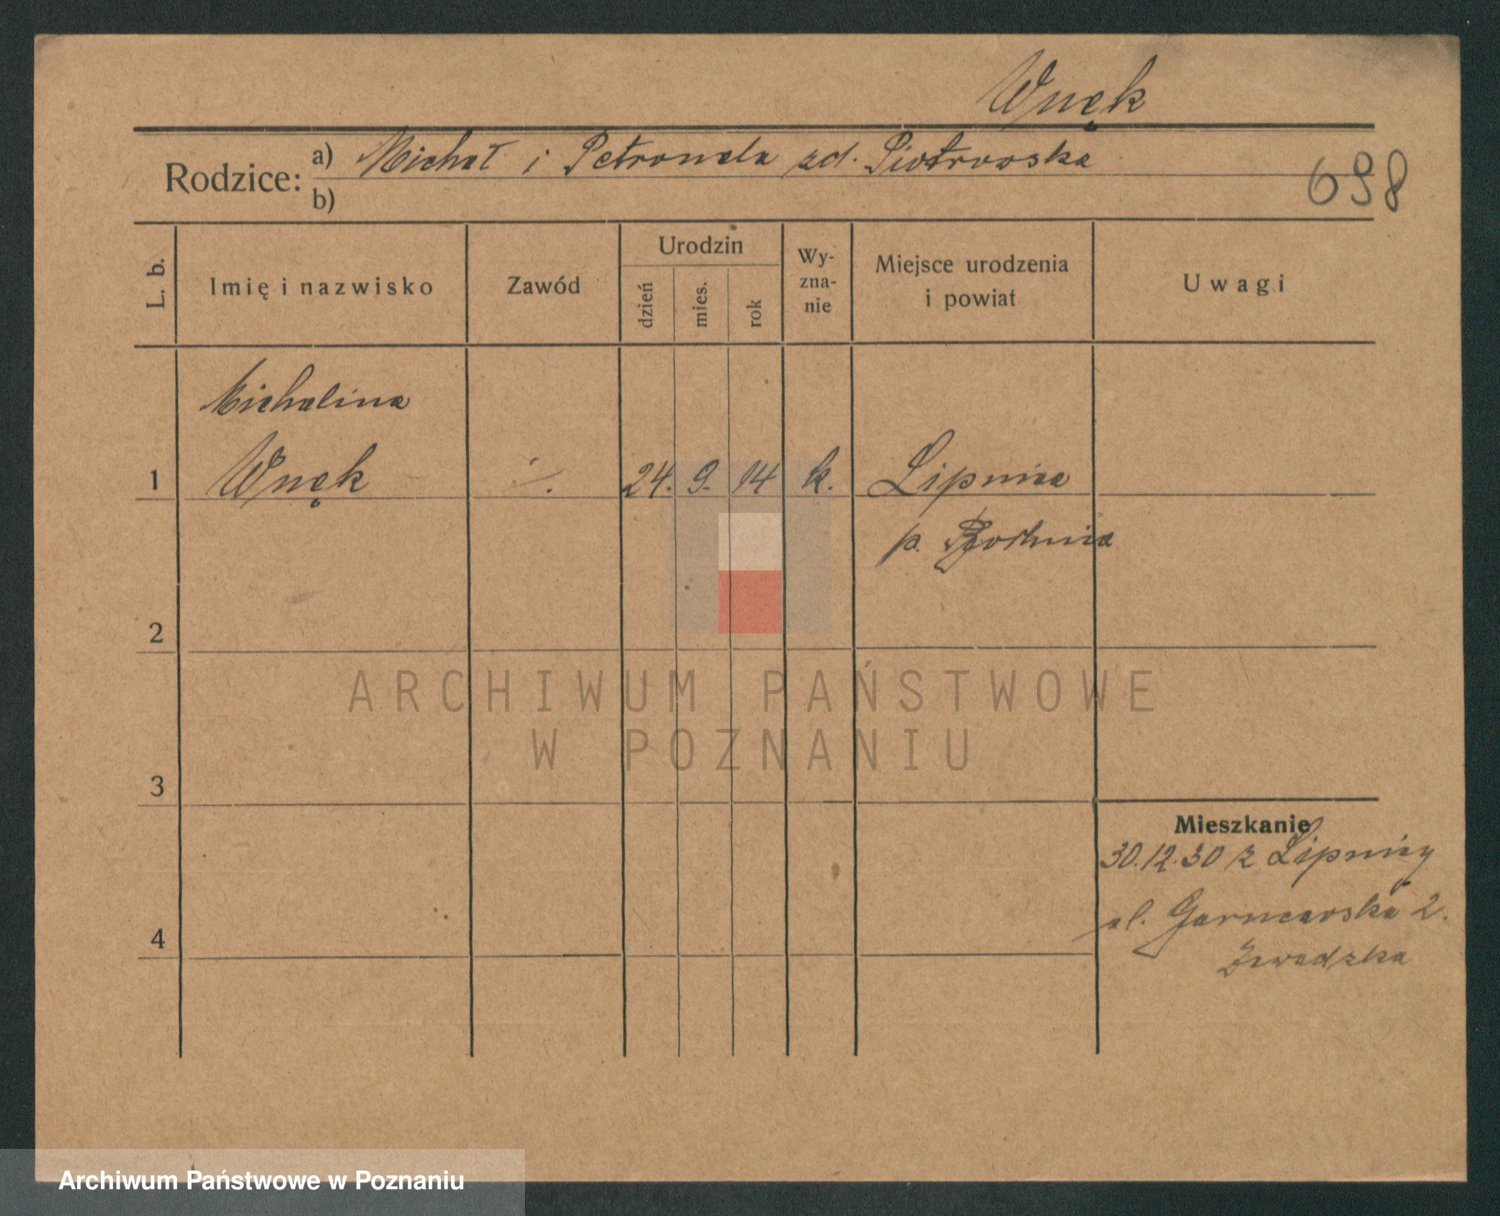 Wnęk
Rodzice: a) Michał i Petronela zd. Piotrowska
b)
698
L. b.
Imię i nazwisko
Zawód
Urodzin
dzień
mies.
rok
Wy-
zna-
nie
Miejsce urodzenia
i powiat
Uwagi
Michalina
1 Wnęk ·/. 24. 9. 14 k. Lipnica
p. Bochnia
2
ARCHIWUM PAŃSTWOWE
W POZNANIU
3
Mieszkanie
30.12.30 z Lipnicy
ul. Garncarska 2.
4
Zawadzka
Archiwum Państwowe w Poznaniu